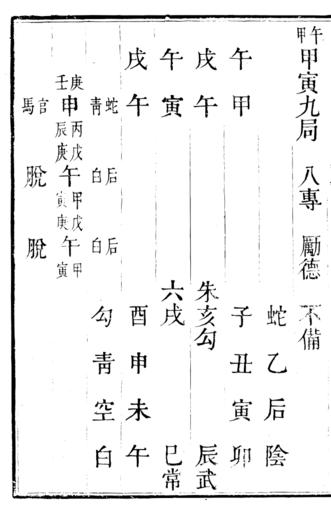 午甲 甲寅九局 八專 勵德 不備
蛇 乙 后 陰
午 甲 子 丑 寅 卯
戌 午 朱亥勾 辰武
午 寅 六戌 巳常
戌 午 酉 申 未 午
蛇青 后白 后白 勾 青 空 白
庚壬 申 丙辰 戊庚 午 甲寅 戊庚 午 甲寅
官馬 脫 脫